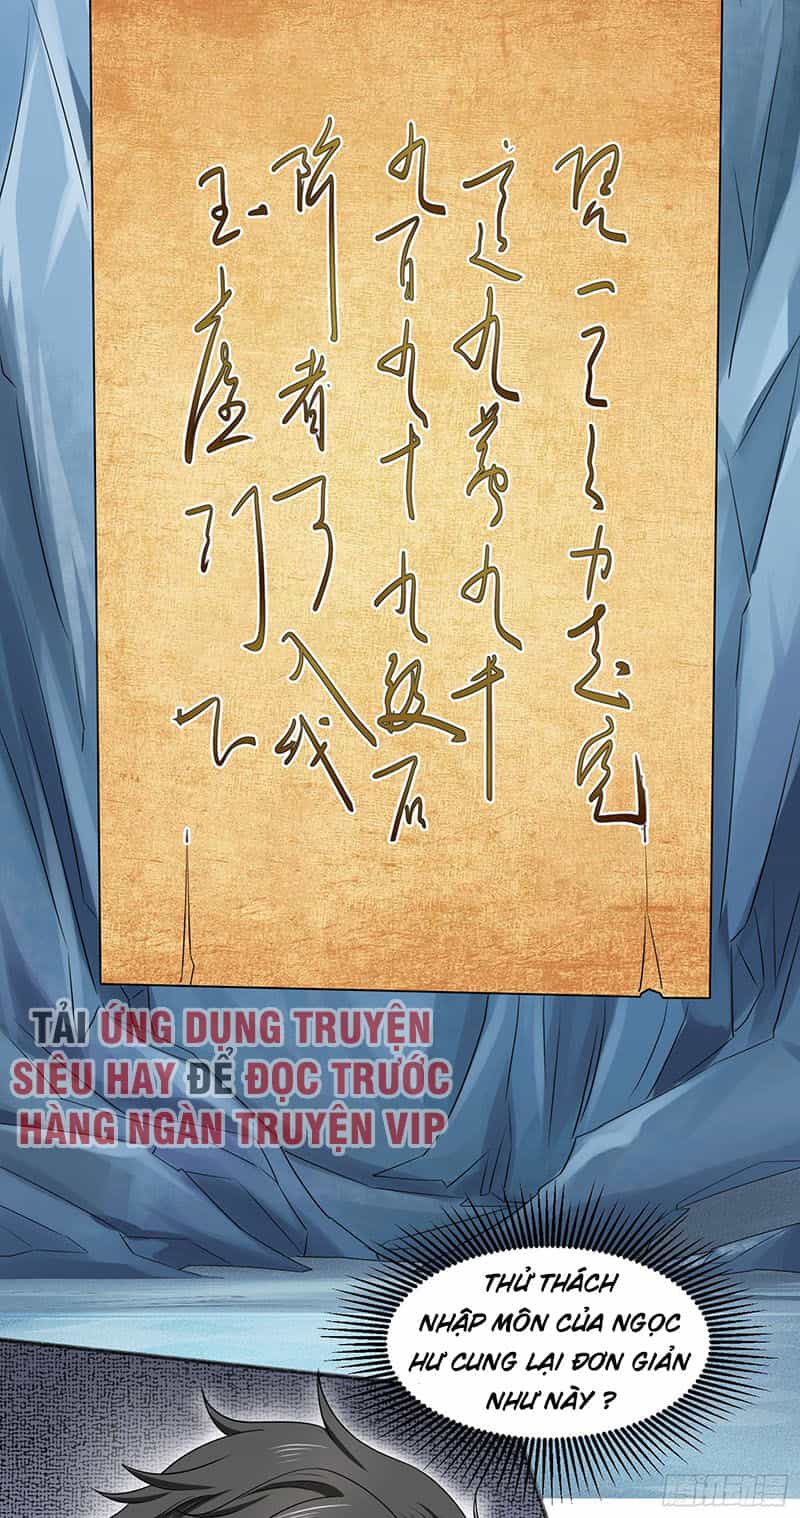 凭一己之力走完
这九万九千
九百九十九级石
阶者可入我
玉虚门下
TẢI ỨNG DỤNG TRUYỆN
SIÊU HAY ĐỂ ĐỌC TRƯỚC
HÀNG NGÀN TRUYỆN VIP
THỬ THÁCH
NHẬP MÔN CỦA NGỌC
HƯ CUNG LẠI ĐƠN GIẢN
NHƯ NÀY ?